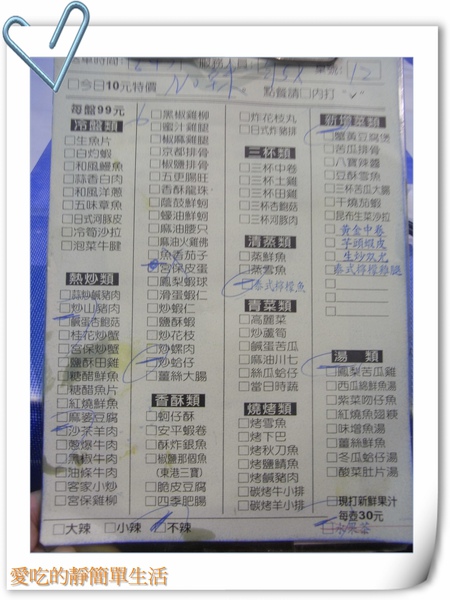 服務人員
單號 12
□今日10元特價
點餐請□內打"ˇ"
每盤99元
冷盤類
□生魚片
□白灼蝦
□和風鰻魚
□蒜香白肉
□和風洋蔥
□五味章魚
□日式河豚皮
□冷筍沙拉
□泡菜牛腱
熱炒類
□蒜炒鹹豬肉
□炒山豬肉
□鹹蛋杏鮑菇
□桂花炒蟹
□宮保炒蟹
□鹽酥田雞
□糖醋鮮魚
□糖醋魚片
□紅燒鮮魚
□麻婆豆腐
□沙茶羊肉
□蔥爆牛肉
□黑椒牛肉
□油條牛肉
□客家小炒
□宮保雞柳
□黑椒雞柳
□蜜汁雞腿
□椒麻雞腿
□京都排骨
□椒鹽排骨
□五更腸旺
□香酥龍珠
□蔭鼓鮮蚵
□蠔油鮮蚵
□麻油腰只
□麻油火雞佛
□魚香茄子
□宮保皮蛋
□鳳梨蝦球
□滑蛋蝦仁
□炒蝦仁
□鹽酥蝦
□炒花枝
□炒螺肉
□炒蛤仔
□薑絲大腸
香酥類
□蚵仔酥
□安平蝦卷
□酥炸銀魚
□椒鹽那個魚
(東港三寶)
□脆皮豆腐
□四季肥腸
□炸花枝丸
□日式炸豬排
三杯類
□三杯中卷
□三杯土雞
□三杯田雞
□三杯杏鮑菇
□三杯河豚肉
清蒸類
□蒸鮮魚
□蒸雪魚
□泰式檸檬魚
青菜類
□高麗菜
□炒蘆筍
□鹹蛋苦瓜
□麻油川七
□絲瓜蛤仔
□當日時蔬
燒烤類
□烤雪魚
□烤下巴
□烤秋刀魚
□烤鹽鯖魚
□烤鹹豬肉
□碳烤牛小排
□碳烤羊小排
新增菜類
□蟹黃豆腐煲
□苦瓜排骨
□八寶辣醬
□豆酥雪魚
□三杯苦瓜大腸
□干燒茄蝦
□昆布生菜沙拉
黃金中卷
芋頭蝦皮
生炒双尤
泰式檸檬雞腿
湯　類
□鳳梨苦瓜雞
□西瓜綿鮮魚湯
□紫菜吻仔魚
□紅燒魚翅粳
□味增魚湯
□薑絲鮮魚
□冬瓜蛤仔湯
□酸菜肚片湯
□現打新鮮果汁
每壺30元
□水果茶
□大辣　□小辣　□不辣
愛吃的靜簡單生活